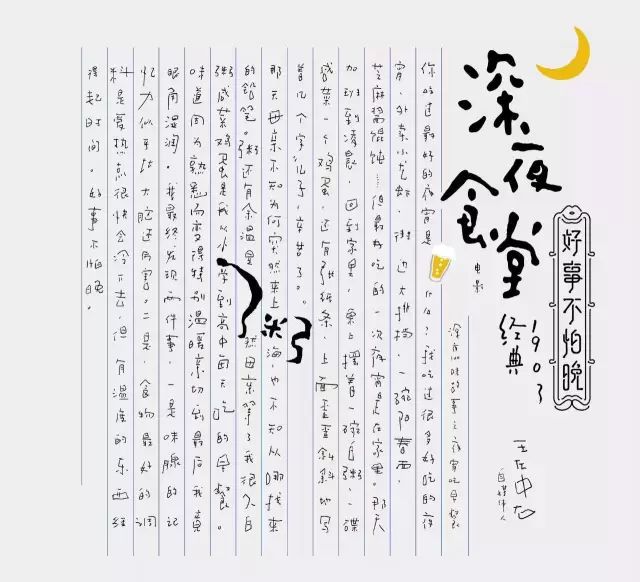 好事不怕晚
深夜食堂
电影
经典1903
王左中右
自媒体人
故事之夜宵吃早餐
你吃过最好的夜宵是什么？我吃过很多好吃的夜
宵，外卖小龙虾，街边大排档，一碗阳春面，
芝麻酱馄饨……但最好吃的一次夜宵是在家里。那天
加班到凌晨，回到家里，桌上摆着一碗白粥，一碟
咸菜一个鸡蛋，还有张纸条，上面歪歪斜斜地写
着几个字：儿子，辛苦了。
那天母亲不知为何突然来上海，也不知从哪找来
的铅笔。粥还有余温，是 母亲等了我很久。白
粥咸菜鸡蛋是我从小学到高中每天吃的早餐。
味道因为熟悉而变得特别温暖亲切。到最后我竟
眼角湿润。我最终发现两件事，一是味腺的记
忆力似乎比大脑还厉害。二是，食物最好的调
料是爱。热点很快会冷下去，但有温度的东西经
得起时间。的事不怕晚。